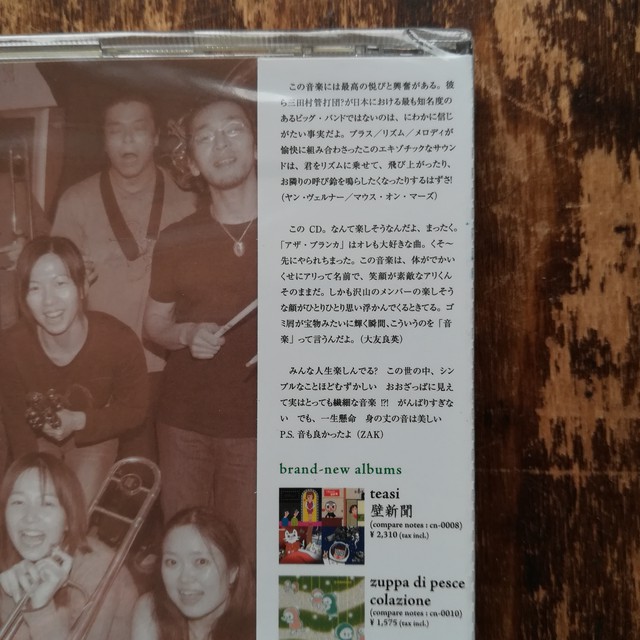 この音楽には最高の悦びと興奮がある。彼
ら三田村管打団?が日本における最も知名度の
あるビッグ・バンドではないのは、にわかに信じ
がたい事実だよ。ブラス／リズム／メロディが
愉快に組み合わさったこのエキゾチックなサウン
ドは、君をリズムに乗せて、飛び上がったり、
お隣りの呼び鈴を鳴らしたくなったりするはずさ!
(ヤン・ヴェルナー／マウス・オン・マーズ)
この CD。なんて楽しそうなんだよ、まったく。
「アザ・ブランカ」はオレも大好きな曲。くそ〜
先にやられちまった。この音楽は、体がでかい
くせにアリって名前で、笑顔が素敵なアリくん
そのままだ。しかも沢山のメンバーの楽しそう
な顔がひとりひとり思い浮かんでくるときてる。ゴ
ミ屑が宝物みたいに輝く瞬間、こういうのを「音
楽」って言うんだよ。(大友良英)
みんな人生楽しんでる? この世の中、シン
プルなことほどむずかしい おおざっぱに見え
て実はとっても繊細な音楽 !?! がんばりすぎな
い でも、一生懸命 身の丈の音は美しい
P.S. 音も良かったよ (ZAK)
brand-new albums
teasi
壁新聞
(compare notes : cn-0008)
¥ 2,310 (tax incl.)
zuppa di pesce
colazione
(compare notes : cn-0010)
¥ 1,575 (tax incl.)